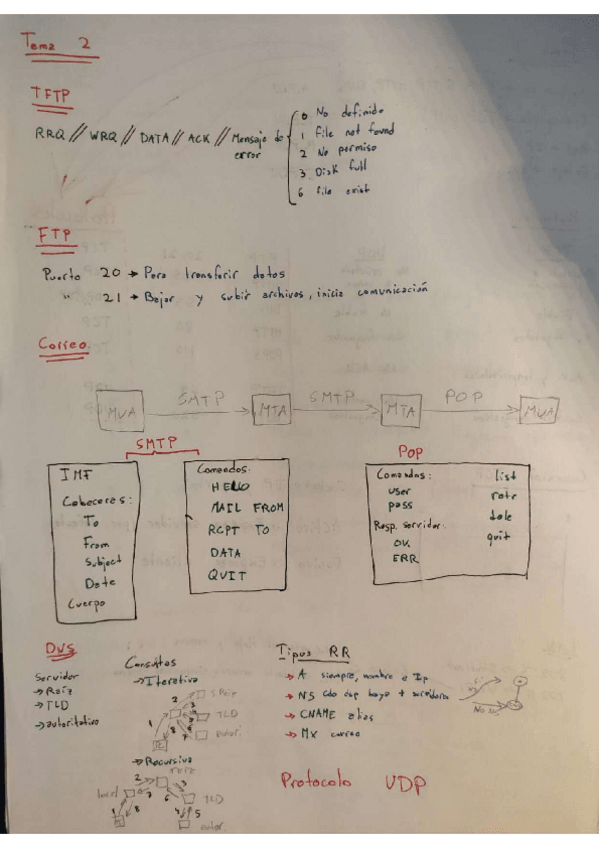 Tema 2
TFTP
RRQ // WRQ // DATA // ACK // Mensaje de error
0 No definido
1 file not found
2 No permiso
3 Disk full
6 file exist
FTP
Puerto 20 → Para transferir datos
" 21 → Bajar y subir archivos, inicia comunicación
Correo
MUA SMTP MTA SMTP MTA POP MUA
SMTP
IMF
Cabeceres:
To
From
Subject
Date
Cuerpo
Comandos:
HELLO
MAIL FROM
RCPT TO
DATA
QUIT
POP
Comandos:
user
pass
Resp. servidor:
OK
ERR
list
retr
dele
quit
DNS
Servidor
→ Raíz
→ TLD
→ autoritativo
Consultas
→ Iterativa
raiz
TLD
autori.
1 2 3
→ Recursiva
raiz
local
TLD
autor.
Tipus RR
→ A siempre, nombre e Ip
→ NS cdo dsp haya + servidores
→ CNAME alias
→ MX correo
Si
No
Protocolo UDP